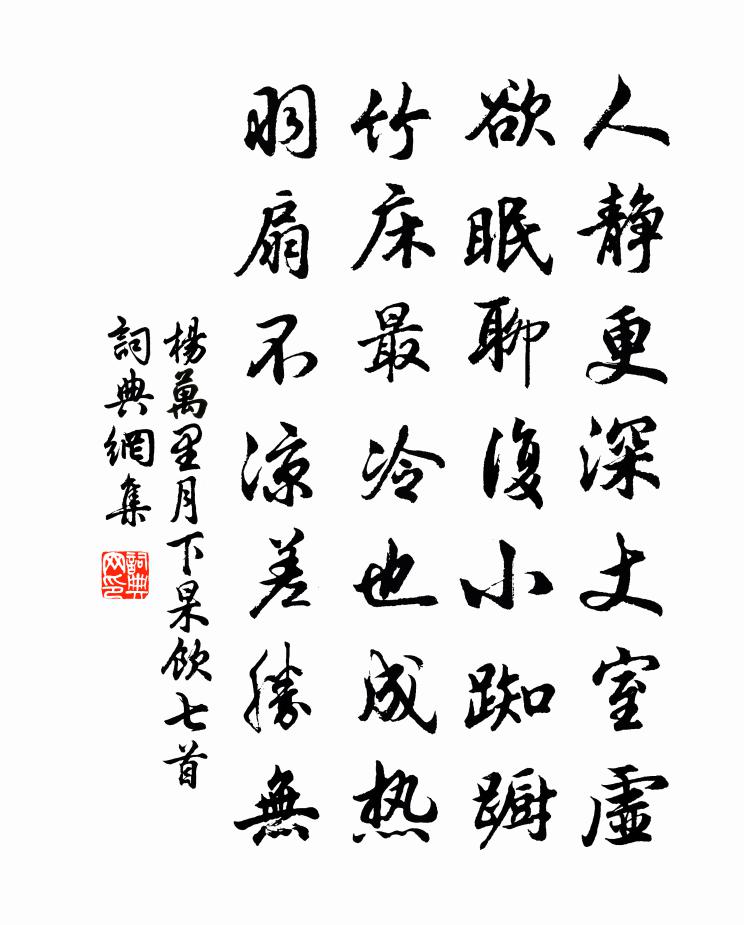 人静更深丈室虚
欲眠聊復小踟蹰
竹床最冷也成热
羽扇不凉差勝無
楊萬里月下杲飲七首
詞典網集
詞典网印